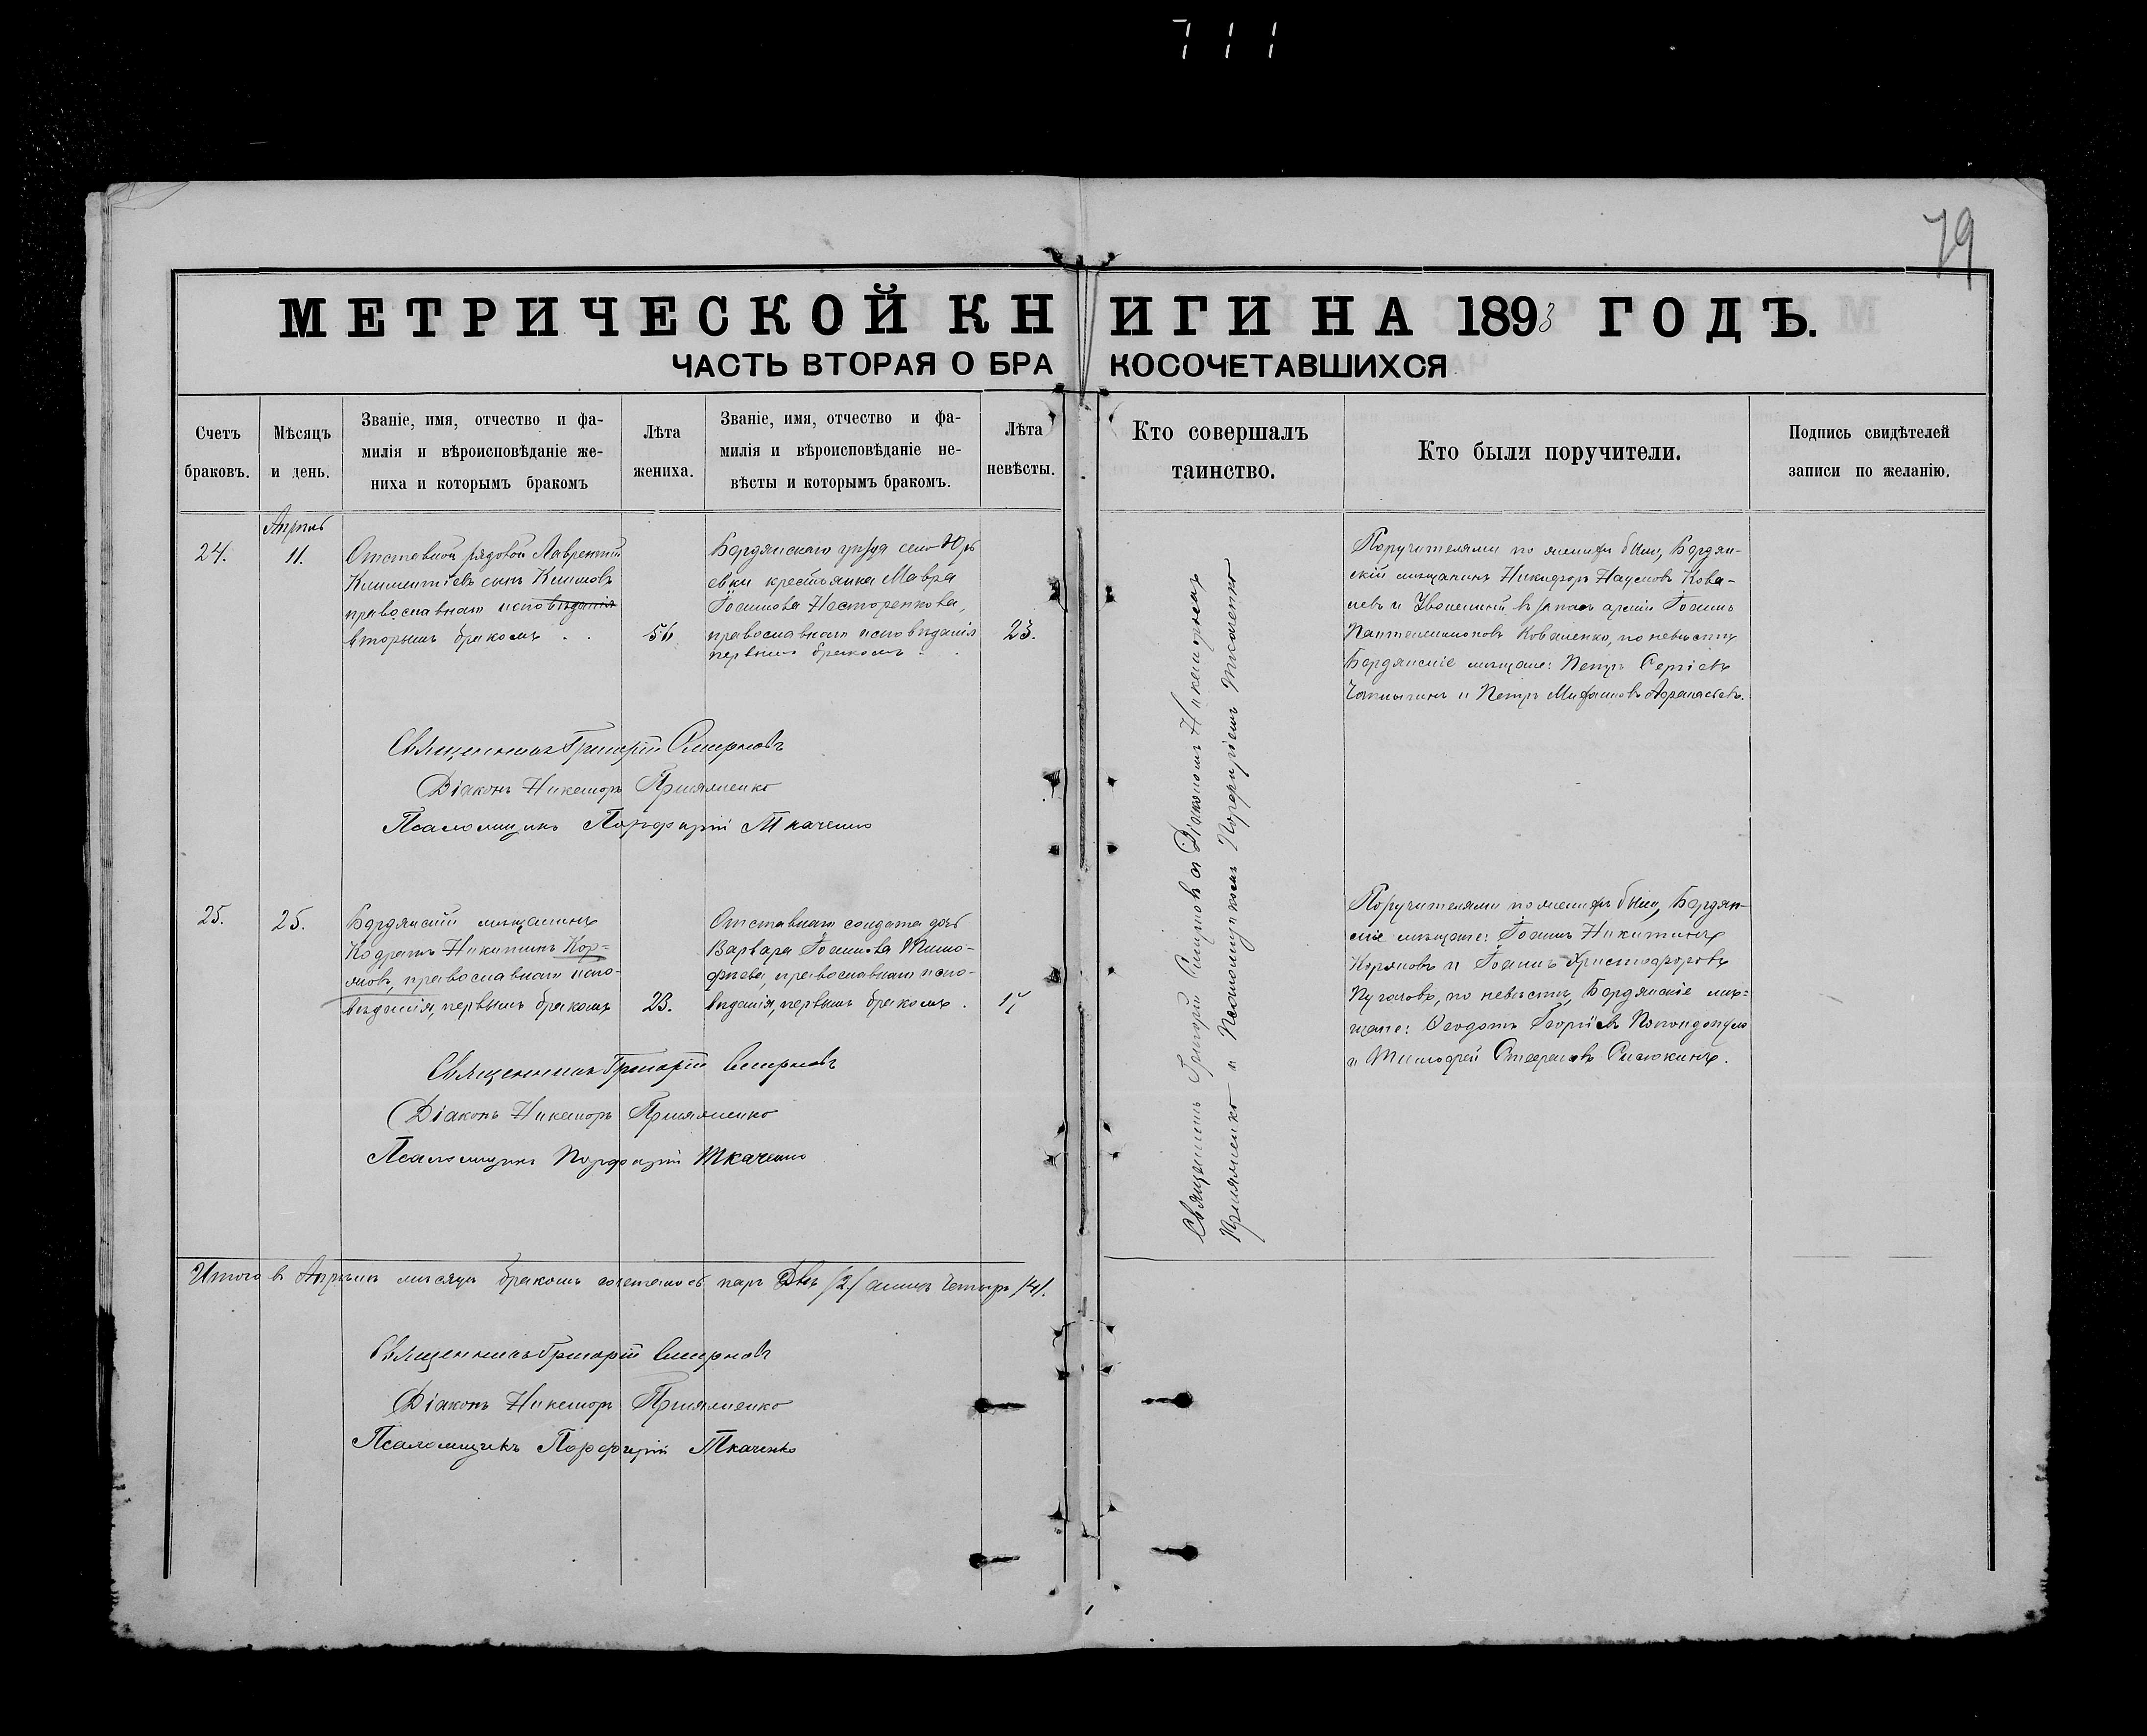 711
79
МЕТРИЧЕСКОЙ КНИГИ НА 1893 ГОДЪ.
ЧАСТЬ ВТОРАЯ О БРАКОСОЧЕТАВШИХСЯ
Счетъ браковъ.
Мѣсяцъ и день.
Званіе, имя, отчество и фа-
милія и вѣроисповѣданіе же-
ниха и которымъ бракомъ
Лѣта жениха.
Званіе, имя, отчество и фа-
милія и вѣроисповѣданіе не-
вѣсты и которымъ бракомъ.
Лѣта невѣсты.
Кто совершалъ таинство.
Кто были поручители.
Подпись свидѣтелей
записи по желанію.
Апрель
24.
11.
Отставной рядовой Лаврентій
Климентіевъ сынъ Климовъ
православнаго исповѣданія
вторымъ бракомъ . .
56
Бердянскаго уѣзда село Юрь
евки крестьянка Мавра
Іоаннова Несторенкова,
православнаго исповѣданія
первымъ бракомъ . .
23.
Поручителями по женихѣ были, Бердян-
скій мѣщанинъ Никифоръ Наумовъ Кова-
левъ и Уволенный въ запасъ арміи Іоаннъ
Пантелеимоновъ Коваленко, по невѣстѣ
Бердянскіе мѣщане: Петръ Сергіевъ
и Петръ Афанасьевъ.
Священникъ Григорій Смирновъ
Діаконъ Никаноръ
Псаломщикъ Порфирій Ткаченко
25.
25.
Бердянскій мѣщанинъ
Кодратъ Никитинъ Кор-
мовъ, православнаго испо-
вѣданія, первымъ бракомъ
23.
Отставнаго солдата дочь
Варвара Іоаннова Тимо-
фѣева, православнаго испо-
вѣданія, первымъ бракомъ.
17
Поручителями по женихѣ были, Бердян-
скіе мѣщане: Іоаннъ Никитинъ
и Іоаннъ Христофоровъ
Пугачовъ, по невѣстѣ, Бердянскіе мѣ-
щане: Феодотъ Георгіевъ
и Тимофей Стефановъ
Священникъ Григорій Смирновъ
Діаконъ Никаноръ
Псаломщикъ Порфирій Ткаченко
Священникъ Григорій Смирновъ съ Діакономъ Никаноромъ
и Псаломщикомъ Порфиріемъ Ткаченко
Итого въ Апрѣлѣ мѣсяцѣ бракомъ сочеталось паръ Двѣ /2/ а лицъ Четыре /4/.
Священникъ Григорій Смирновъ
Діаконъ Никаноръ
Псаломщикъ Порфирій Ткаченко